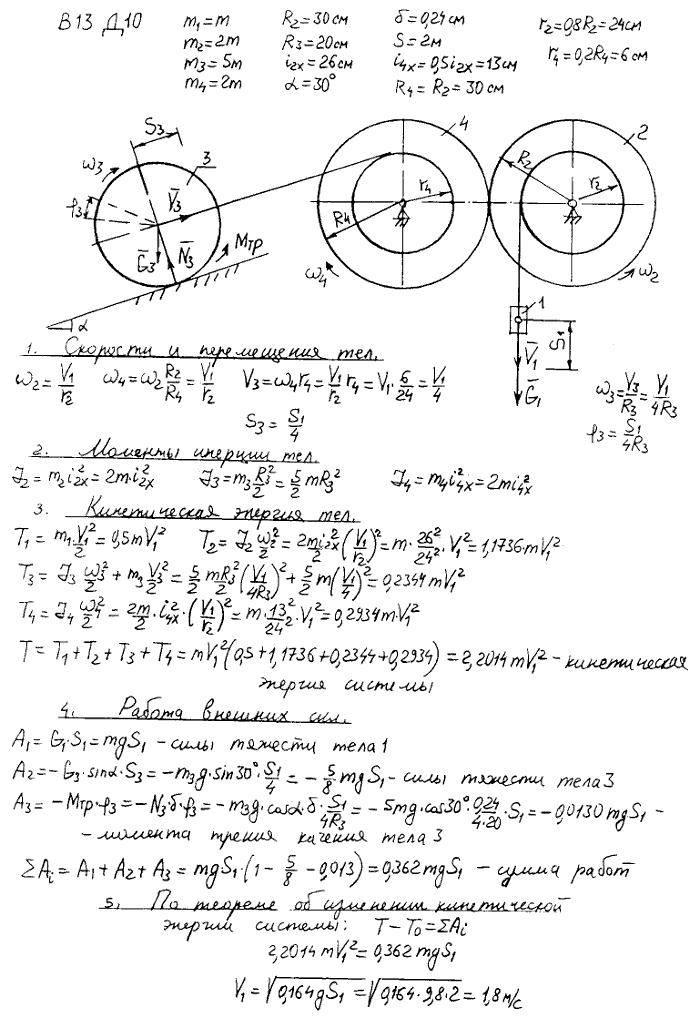 В13 Д10 m₁=m R₂=30см δ=0,24см r₂=0,8R₂=24см
m₂=2m R₃=20см S=2м
m₃=5m i₂ₓ=26см i₄ₓ=0,5i₂ₓ=13см r₄=0,2R₄=6см
m₄=2m α=30° R₄=R₂=30см
S₃ 4 2
ω₃ 3 R₂
φ₃ V̅₃ r₄ r₂
G̅₃ N̅₃ Mтр R₄
ω₄ ω₂
α 1 S₁
V̅₁
G̅₁
1. Скорости и перемещения тел.
ω₂=V₁/r₂ ω₄=ω₂R₂/R₄=V₁/r₂ V₃=ω₄r₄=V₁/r₂ r₄=V₁·6/24=V₁/4 ω₃=V₃/R₃=V₁/4R₃
S₃=S₁/4 φ₃=S₁/4R₃
2. Моменты инерции тел.
J₂=m₂i₂ₓ²=2mi₂ₓ² J₃=m₃R₃²/2=5/2 mR₃² J₄=m₄i₄ₓ²=2mi₄ₓ²
3. Кинетическая энергия тел.
T₁=m₁V₁²/2=0,5mV₁² T₂=J₂ω₂²/2=2mi₂ₓ²/2(V₁/r₂)²=m·26²/24²·V₁²=1,1736·mV₁²
T₃=J₃ω₃²/2+m₃V₃²/2=5/2 mR₃²/2(V₁/4R₃)²+5/2 m(V₁/4)²=0,2344mV₁²
T₄=J₄ω₄²/2=2m/2·i₄ₓ²·(V₁/r₂)²=m·13²/24²·V₁²=0,2934mV₁²
T=T₁+T₂+T₃+T₄=mV₁²(0,5+1,1736+0,2344+0,2934)=2,2014mV₁² – кинетическая
энергия системы
4. Работа внешних сил.
A₁=G₁·S₁=mgS₁ – силы тяжести тела 1
A₂=-G₃·sinα·S₃=-m₃g·sin30°·S₁/4=-5/8 mgS₁ – силы тяжести тела 3
A₃=-Mтр·φ₃=-N₃·δ·φ₃=-m₃g·cosα·δ·S₁/4R₃=-5mg·cos30°·0,24/4·20·S₁=-0,0130mgS₁ –
– момента трения качения тела 3
ΣAᵢ=A₁+A₂+A₃=mgS₁·(1-5/8-0,013)=0,362mgS₁ – сумма работ
5. По теореме об изменении кинетической
энергии системы: T-T₀=ΣAᵢ
2,2014mV₁²=0,362mgS₁
V₁=√0,164gS₁=√0,164·9,8·2=1,8м/с